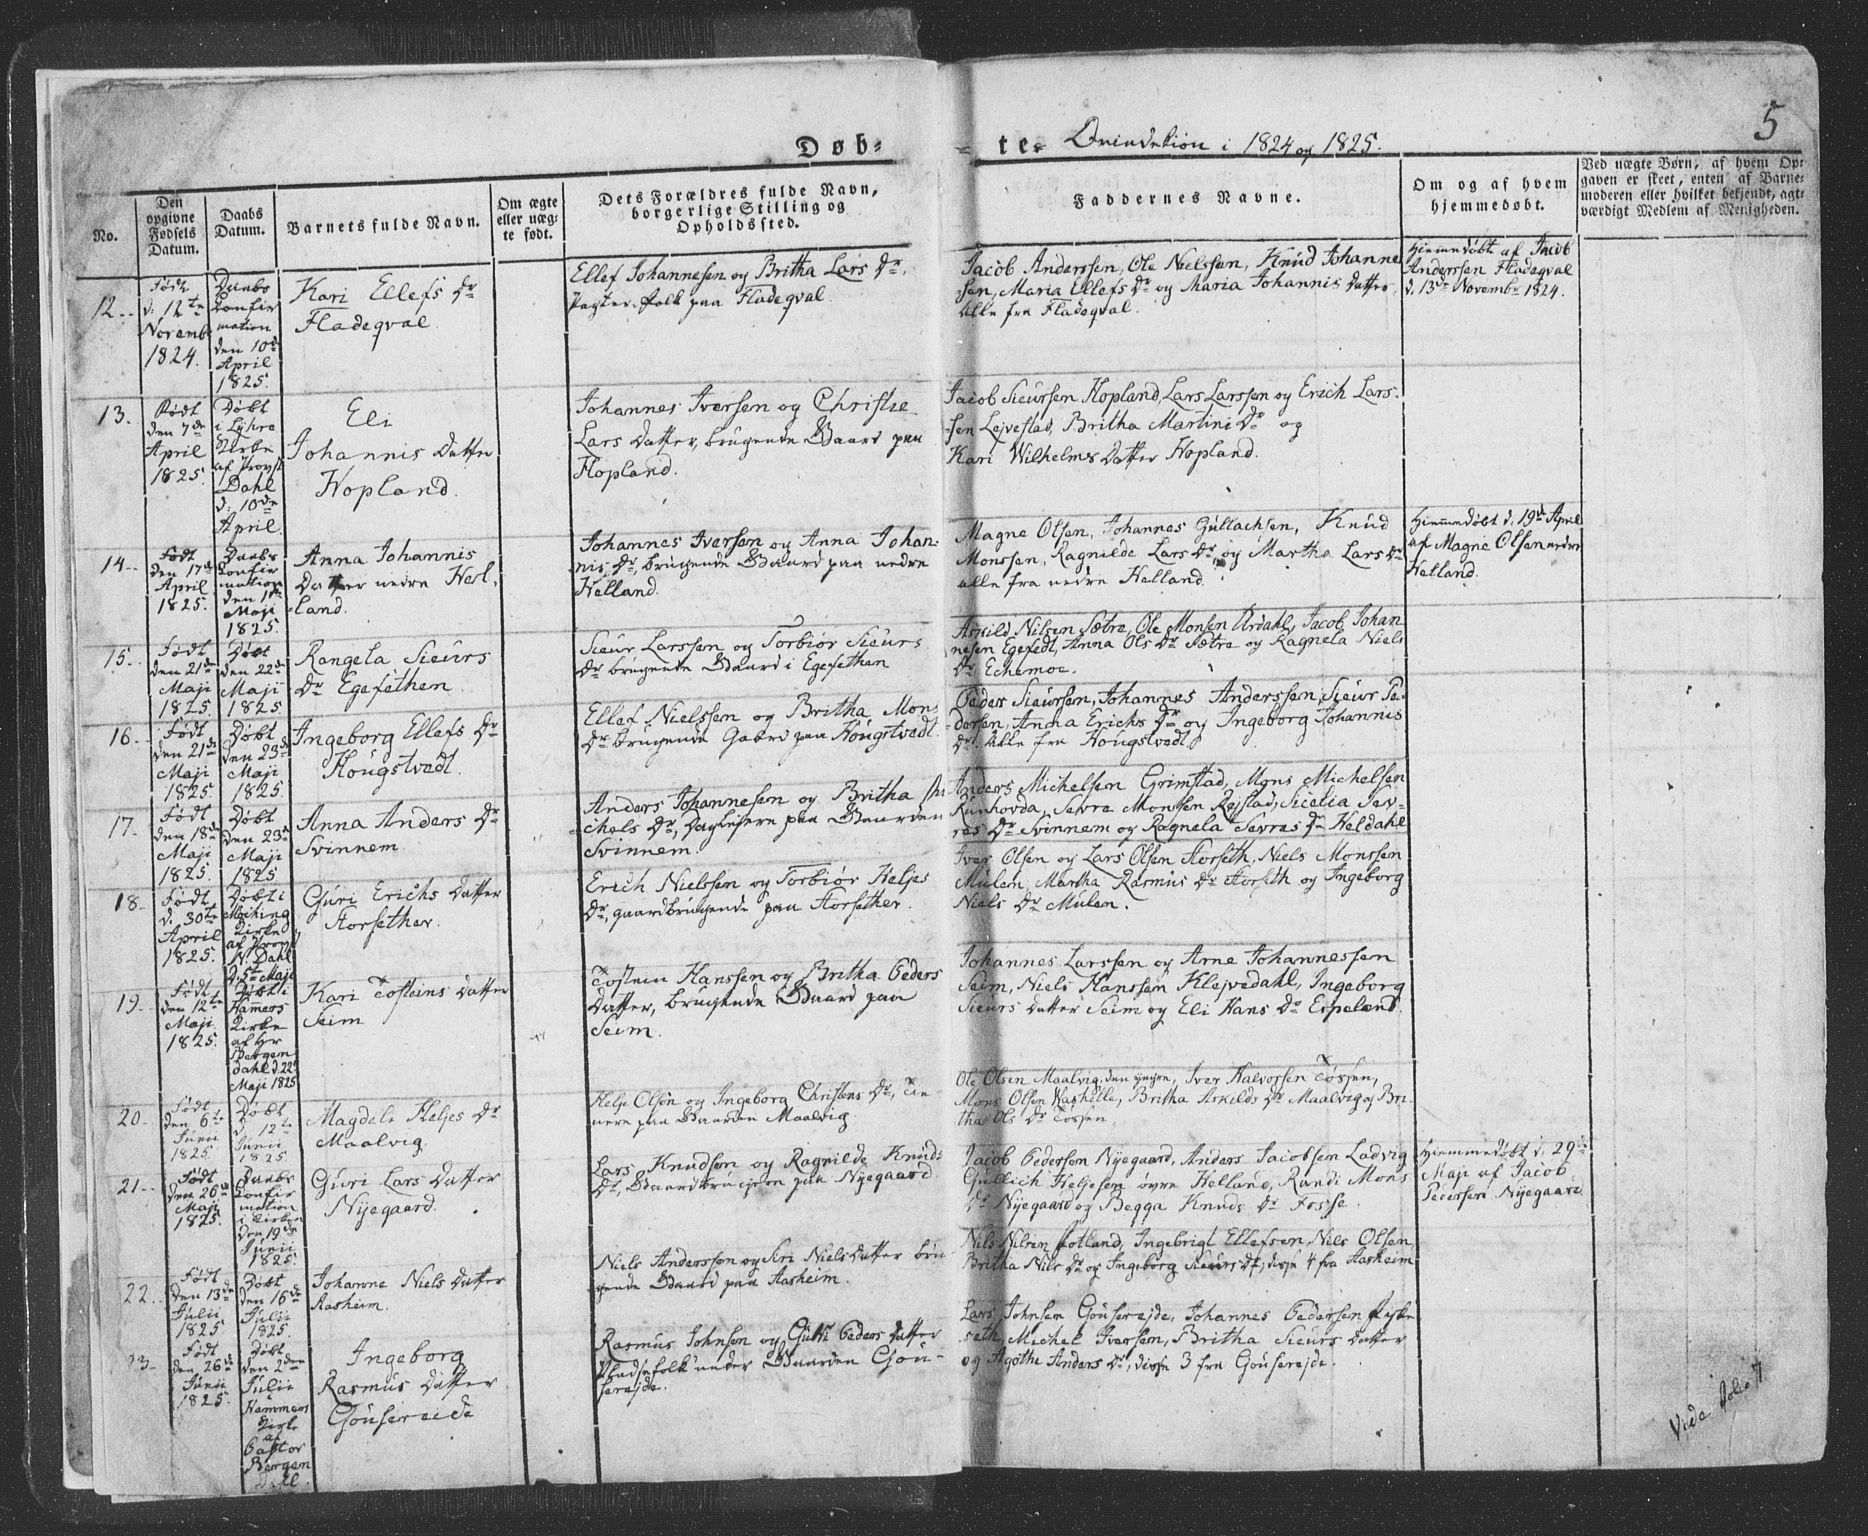 5
Døb-
te. Qvindekiøn i 1824 og 1825.
No.
Den
opgivne
Fødsels
Datum.
Daabs
Datum.
Barnets fulde Navn.
Om ægte
eller uæg-
te født.
Dets Forældres fulde Navn,
borgerlige Stilling og
Opholdssted.
Faddernes Navne.
Om og af hvem
hjemmedøbt.
Ved uægte Børn, af hvem Op-
gaven er skeet, enten af Barne-
moderen eller hvilket bekjendt, agt-
værdigt Medlem af Menigheden.
12.
Født
d: 12te
Novemb
1824.
Daabs
Confir
mation
den 10de
April
1825.
Kari Ellefs Dr
Fladeqval.
Ellef Johannesen og Britha Lars Dr,
Pagter-folk paa Fladeqval.
Jacob Anderssen, Ole Nielssen, Knud Johanne
sen, Maria Ellefs Dr og Maria Johannis Datter
Alle fra Fladeqval.
Hiemmedøbt af Jacob
Anderssen Fladeqval
d. 13de Novembr 1824.
13.
Født
den 7de
April
1825.
Døbt
i Lyhre
Kirke
af Provst
Dahl
d: 10de
April
Eli
Johannis Datter
Hopland.
Johannes Iversen og Christie
Lars Datter, brugende Gaard paa
Hopland.
Jacob Sieursen Hopland, Lars Larssen og Erich Lars-
sen Lejvestad, Britha Martini Dr og
Kari Wilhelms Datter Hopland.
14.
Født
den 17de
April
1825.
Daabs
Confir
mation
den
Maji
1825.
Anna Johannis
Datter nedre Hel-
land.
Johannes Iversen og Anna Johan-
nis Dr, brugende Gaard paa nedre
Helland.
Magne Olsen, Johannes Gullachsen, Knud
Monssen, Ragnilde Lars Dr og Martha Lars Dr
alle fra nedre Helland.
Hiemmedøbt d. 19de April
af Magne Olsen nedre
Helland.
15.
Født
den 21de
Maji
1825
Døbt
den 22de
Maji
1825
Rangela Sieurs
Dr Egefethen.
Sieur Larssen og Torbiør Sieurs
Dr brugende Gaard i Egefethen
Askild Nilsen Sætre, Ole Monsen Urdahl, Jacob Johan
nesen Egefedt, Anna Ols Dr Sætre og Ragnela Niels
Dr Echemoe.
16.
Født
den 21de
Maji
1825
Døbt
den 23de
Maji
1825.
Ingeborg Ellefs Dr
Hougstvedt.
Ellef Nielssen og Britha Mons
Dr brugende Gaard paa Hougstvedt.
Peder Sieurssen, Johannes Anderssen, Sieur Pe-
dersen, Anna Erichs Dr og Ingeborg Johannis
Dr. Alle fra Hougstvedt.
17.
Født
den 18de
Maji
1825.
Døbt
den 23de
Maji
1825
Anna Anders Dr
Svinnem
Anders Johannesen og Britha Mi
chels Dr, Daglejere paa Gaarden
Svinnem.
Anders Michelsen Grimstad, Mons Michelsen
Runhovda, Sevre Monsen Rejstad, Sicelia Sev-
res Dr Svinnem og Ragnela Sevres Dr Heldahl
18.
Født
d. 30te
April
1825.
Døbt i
Mæhing
Kirke
af Provst
N. Dahl
d. 5te Maji
Guri Erichs Datter
Horsether.
Erich Nielssen og Torbiør Heljes
Dr, gaardbrugende paa Horsether.
Iver Olsen og Lars Olsen Horseth, Niels Monssen
Mulem, Martha Rasmus Dr Horseth og Ingeborg
Niels Dr Mulem.
19.
Født
den 12te
Maji
1825.
Døbt i
Hammers
Kirke
af Hr
Bergen
dahl d. 22
Maji 1825
Kari Tosteins Datter
Seim
Tostein Hanssen og Britha Peders
Datter, brugende Gaard paa
Seim.
Johannes Larssen og Arne Johannessen
Seim, Niels Hanssen Klejvedahl, Ingeborg
Sieurs Datter Seim og Eli Hans Dr Espeland.
20.
Født
den 6te
Junii
1825
Døbt
d. 12te
Junii
1825
Magdele Heljes Dr
Maalvig.
Helje Olsen og Ingeborg Christens Dr, Tie-
nere paa Gaarden Maalvig.
Ole Olsen Maalvig den yngre, Iver Halvorsen Tøssen,
Mons Olsen Washille, Britha Askilds Dr Maalvig og Bri
tha Ols Dr Tøssen.
21.
Født
den 26de
Maji
1825.
Daabs
Confir
mation
i Kirken
den 19de
Junii
1825.
Guri Lars Datter
Nyegaard.
Lars Knudsen og Ragnilde Knuds
Dr, Gaardbrugere paa Nyegaard
Jacob Pedersen Nyegaard, Anders Jacobsen Ladvig
Gullich Heljesen øvre Helland, Randi Mons
Dr Nyegaard og Begga Knuds Dr Fosse.
Hiemmedøbt d. 29de
Maji af Jacob
Pedersen Nyegaard
22.
Født
den 13de
Julii
1825
Døbt
den 16de
Julii
1825.
Johanne Niels Datter
Aasheim.
Niels Anderssen og Siri Niels Datter bru-
gende Gaard paa Aasheim.
Nils Nilsen Hotland, Ingebrigt Ellefsen, Nils Olsen
Britha Nils Dr og Ingeborg Sieurs Dr, disse 4 fra Aasheim
23.
Født
den 26de
Junii
1825.
Døbt
den 2den
Julii
Hammers
Kirke
af
Pastor
Bergen
dahl.
Ingeborg
Rasmus Datter
Gousereide
Rasmus Johnsen og Guri Peders Datter
Pladsefolk under Gaarden Gou-
serejde.
Lars Johnsen Gouserejde, Johannes Pedersen
seth, Michel Iversen, Britha Sieurs Datter
og Agothe Anders Dr, disse 3 fra Gouserejde.
Vide Folio 7